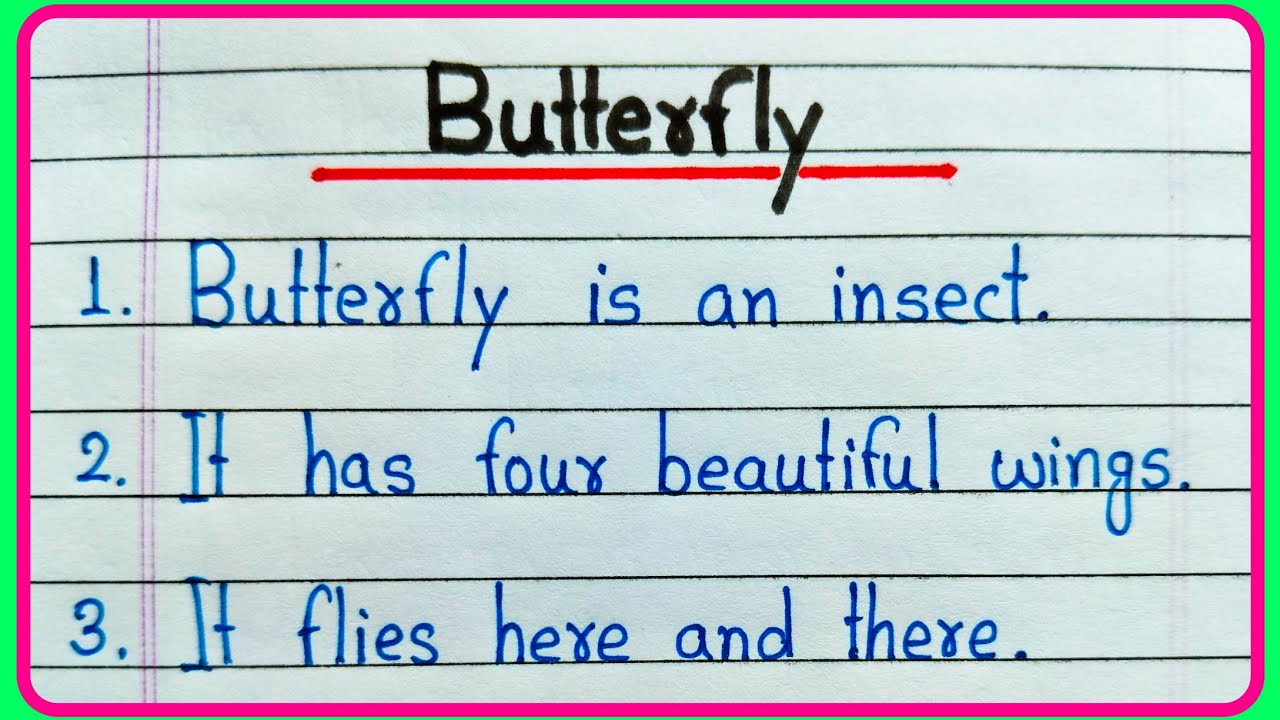 Butterfly
1. Butterfly is an insect.
2. It has four beautiful wings.
3. It flies here and there.